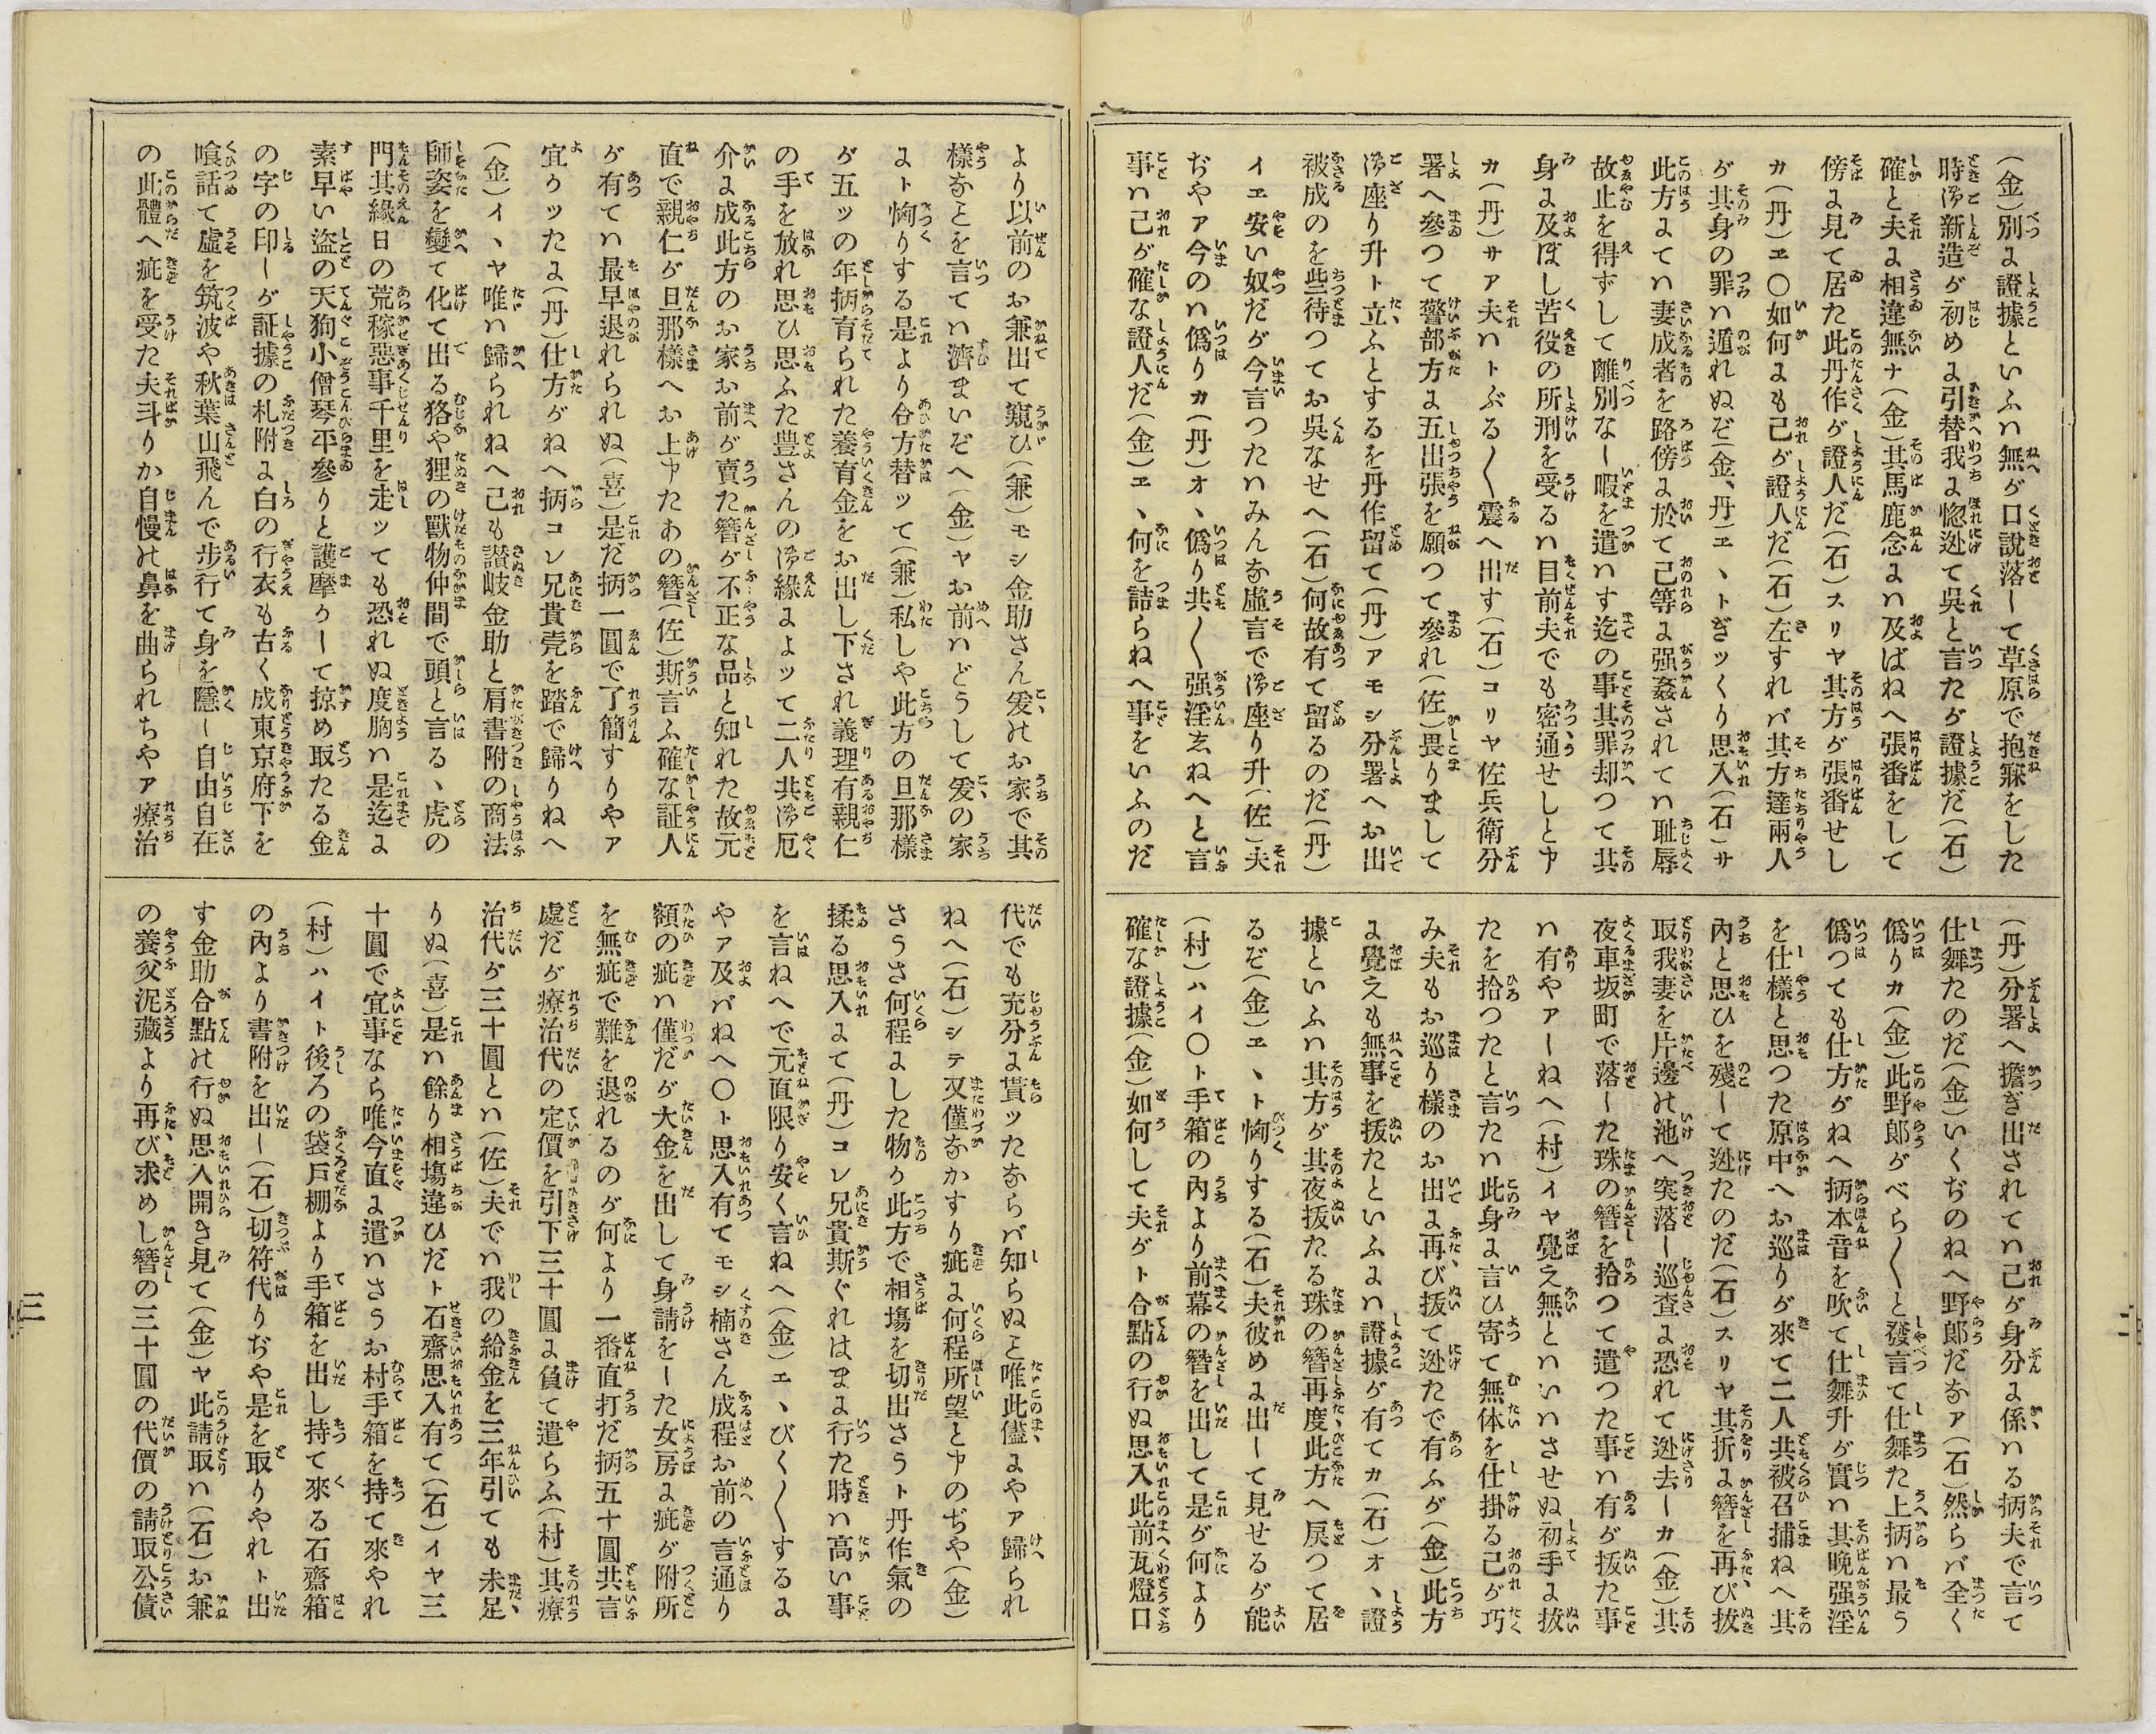 （金）別に證據といふハ無へが口說落して草原で抱寐をした
時御新造が初めに引替我に惚迯て吳と言たが證據だ（石）
確と夫に相違無ナ（金）其馬鹿念にハ及ばねへ張番をして
傍に見て居た此丹作が證人だ（石）スリヤ其方が張番せし
カ（丹）エ〇如何にも己が證人だ（石）左すれバ其方達兩人
が其身の罪ハ遁れぬぞ（金、丹）エヽトぎツくり思入（石）サ
此方にてハ妻成者を路傍に於て己等に强姦されてハ耻辱
故止を得ずして離別なし暇を遣ハす迄の事其罪却つて其
身に及ぼし苦役の所刑を受るハ目前夫でも密通せしとヤ
カ（丹）サア夫ハトぶる〱震へ出す（石）コリヤ佐兵衛分
署へ參つて警部方に五出張を願つて參れ（佐）畏りまして
御座り升ト立ふとするを丹作留て（丹）アモシ分署へお出
被成のを些待つてお吳なせへ（石）何故有て留るのだ（丹）
イエ安い奴だが今言つたハみんな虛言で御座り升（佐）夫
ぢやア今のハ僞りカ（丹）オヽ僞り共〱强淫ゑねへと言
事ハ己が確な證人だ（金）エヽ何を詰らねへ事をいふのだ
（丹）分署へ擔ぎ出されてハ己が身分に係ハる柄夫で言て
仕舞たのだ（金）いくぢのねへ野郎だなア（石）然らバ全く
僞りカ（金）此野郎がべら〱と發言て仕舞た上柄ハ最う
僞つても仕方がねへ柄本音を吹て仕舞升が實ハ其晩强淫
を仕樣と思つた原中へお巡りが來て二人共被召捕ねへ其
內と思ひを殘して迯たのだ（石）スリヤ其折に簪を再び拔
取我妻を片邊の池へ突落し巡査に恐れて迯去しカ（金）其
夜車坂町で落した珠の簪を拾つて遣つた事ハ有が拔た事
ハ有やアしねへ（村）イヤ覺え無とハいハさせぬ初手に拔
たを拾つたと言たハ此身に言ひ寄て無体を仕掛る己が巧
み夫もお巡り樣のお出に再び拔て迯たで有ふが（金）此方
に覺えも無事を拔たといふにハ證據が有てカ（石）オヽ證
據といふハ其方が其夜拔たる珠の簪再度此方へ戾つて居
るぞ（金）エヽト恟りする（石）夫彼めに出して見せるが能
（村）ハイ〇ト手箱の內より前幕の簪を出して是が何より
確な證據（金）如何して夫がト合點の行ぬ思入此前瓦燈口
より以前のお兼出て窺ひ（兼）モシ金助さん爰のお家で其
樣なとを言てハ濟まいぞへ（金）ヤお前ハどうして爰の家
にト恟りする是より合方替ッて（兼）私しや此方の旦那樣
が五ッの年柄育られた養育金をお出し下され義理有親仁
の手を放れ思ひ思ふた豊さんの御緣によッて二人共御厄
介に成此方のお家お前が賣た簪が不正な品と知れた故元
直で親仁が旦那樣へお上ヤたあの簪（佐）斯言ふ確な証人
が有てハ最早退れられぬ（喜）是だ柄一圓で了簡すりやア
宜ッた（丹）仕方がねへ柄コレ兄貴壳を踏で歸りねへ
（金）イヽヤ唯ハ歸られねへ己も讃岐金助と肩書附の商法
師姿を變て化て出る狢や狸の獸物仲間で頭と言るヽ虎の
門其緣日の荒稼惡事千里を走ッても恐れぬ度胸ハ是迄に
素早い盜の天狗小僧琴平參りと護摩して掠め取たる金
の字の印しが証據の札附に白の行衣も古く成東京府下を
喰話て虛を筑波や秋葉山飛んで步行て身を隱し自由自在
の此體へ疵を受た夫斗りか自慢の鼻を曲られちやア療治
代でも充分に貰ッたならバ知らぬと唯此儘にやア歸られ
ねへ（石）シテ又僅なかすり疵に何程所望とヤのぢや（金）
さうさ何程にした物か此方で相塲を切出さうト丹作氣の
揉る思入にて（丹）コレ兄貴斯ぐれはまに行た時ハ高い事
を言ねへで元直限り安く言ねへ（金）エヽびく〱するに
やア及バねへ〇ト思入有てモシ楠さん成程お前の言通り
額の疵ハ僅だが大金を出して身請をした女房に疵が附所
を無疵で難を退れるのが何より一番直打だ柄五十圓共言
處だが療治代の定價を引下三十圓に負て遣らふ（村）其療
治代が三十圓とハ（佐）夫でハ我の給金を三年引ても未足
りぬ（喜）是ハ餘り相塲違ひだト石齋思入有て（石）イヤ三
十圓で宜事なら唯今直に遣ハさうお村手箱を持て來やれ
（村）ハイト後ろの袋戸棚より手箱を出し持て來る石齋箱
の內より書附を出し（石）切符代りぢや是を取りやれト出
す金助合點の行ぬ思入開き見て（金）ヤ此請取ハ（石）お兼
の養父泥藏より再び求めし簪の三十圓の代價の請取公債
二
三